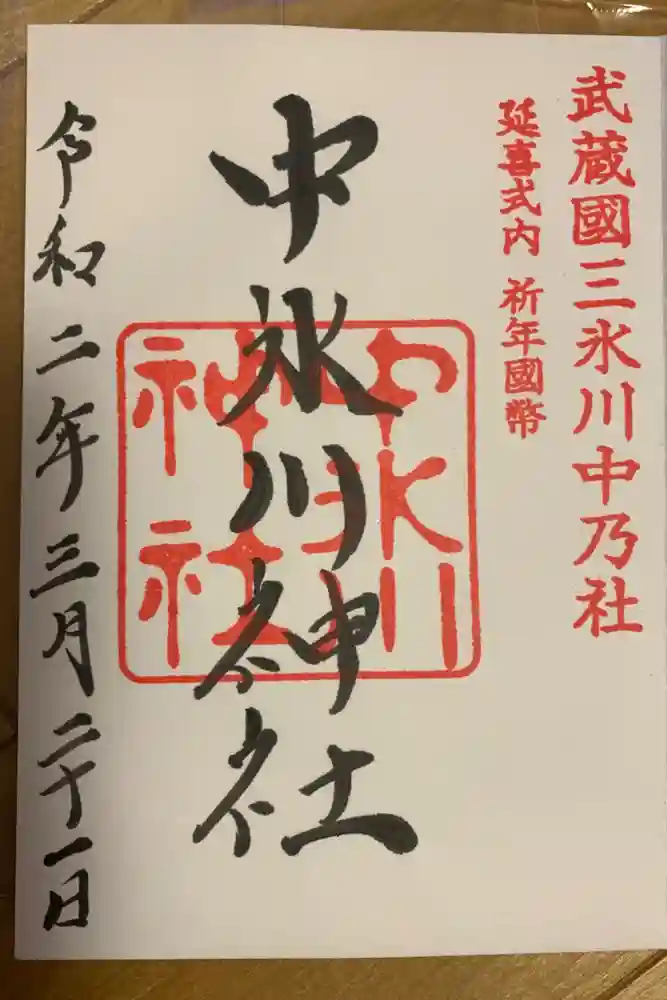 武蔵國三氷川中乃社
延喜式内 祈年國幣
中氷川神社
中氷川
神社
令和二年三月二十一日